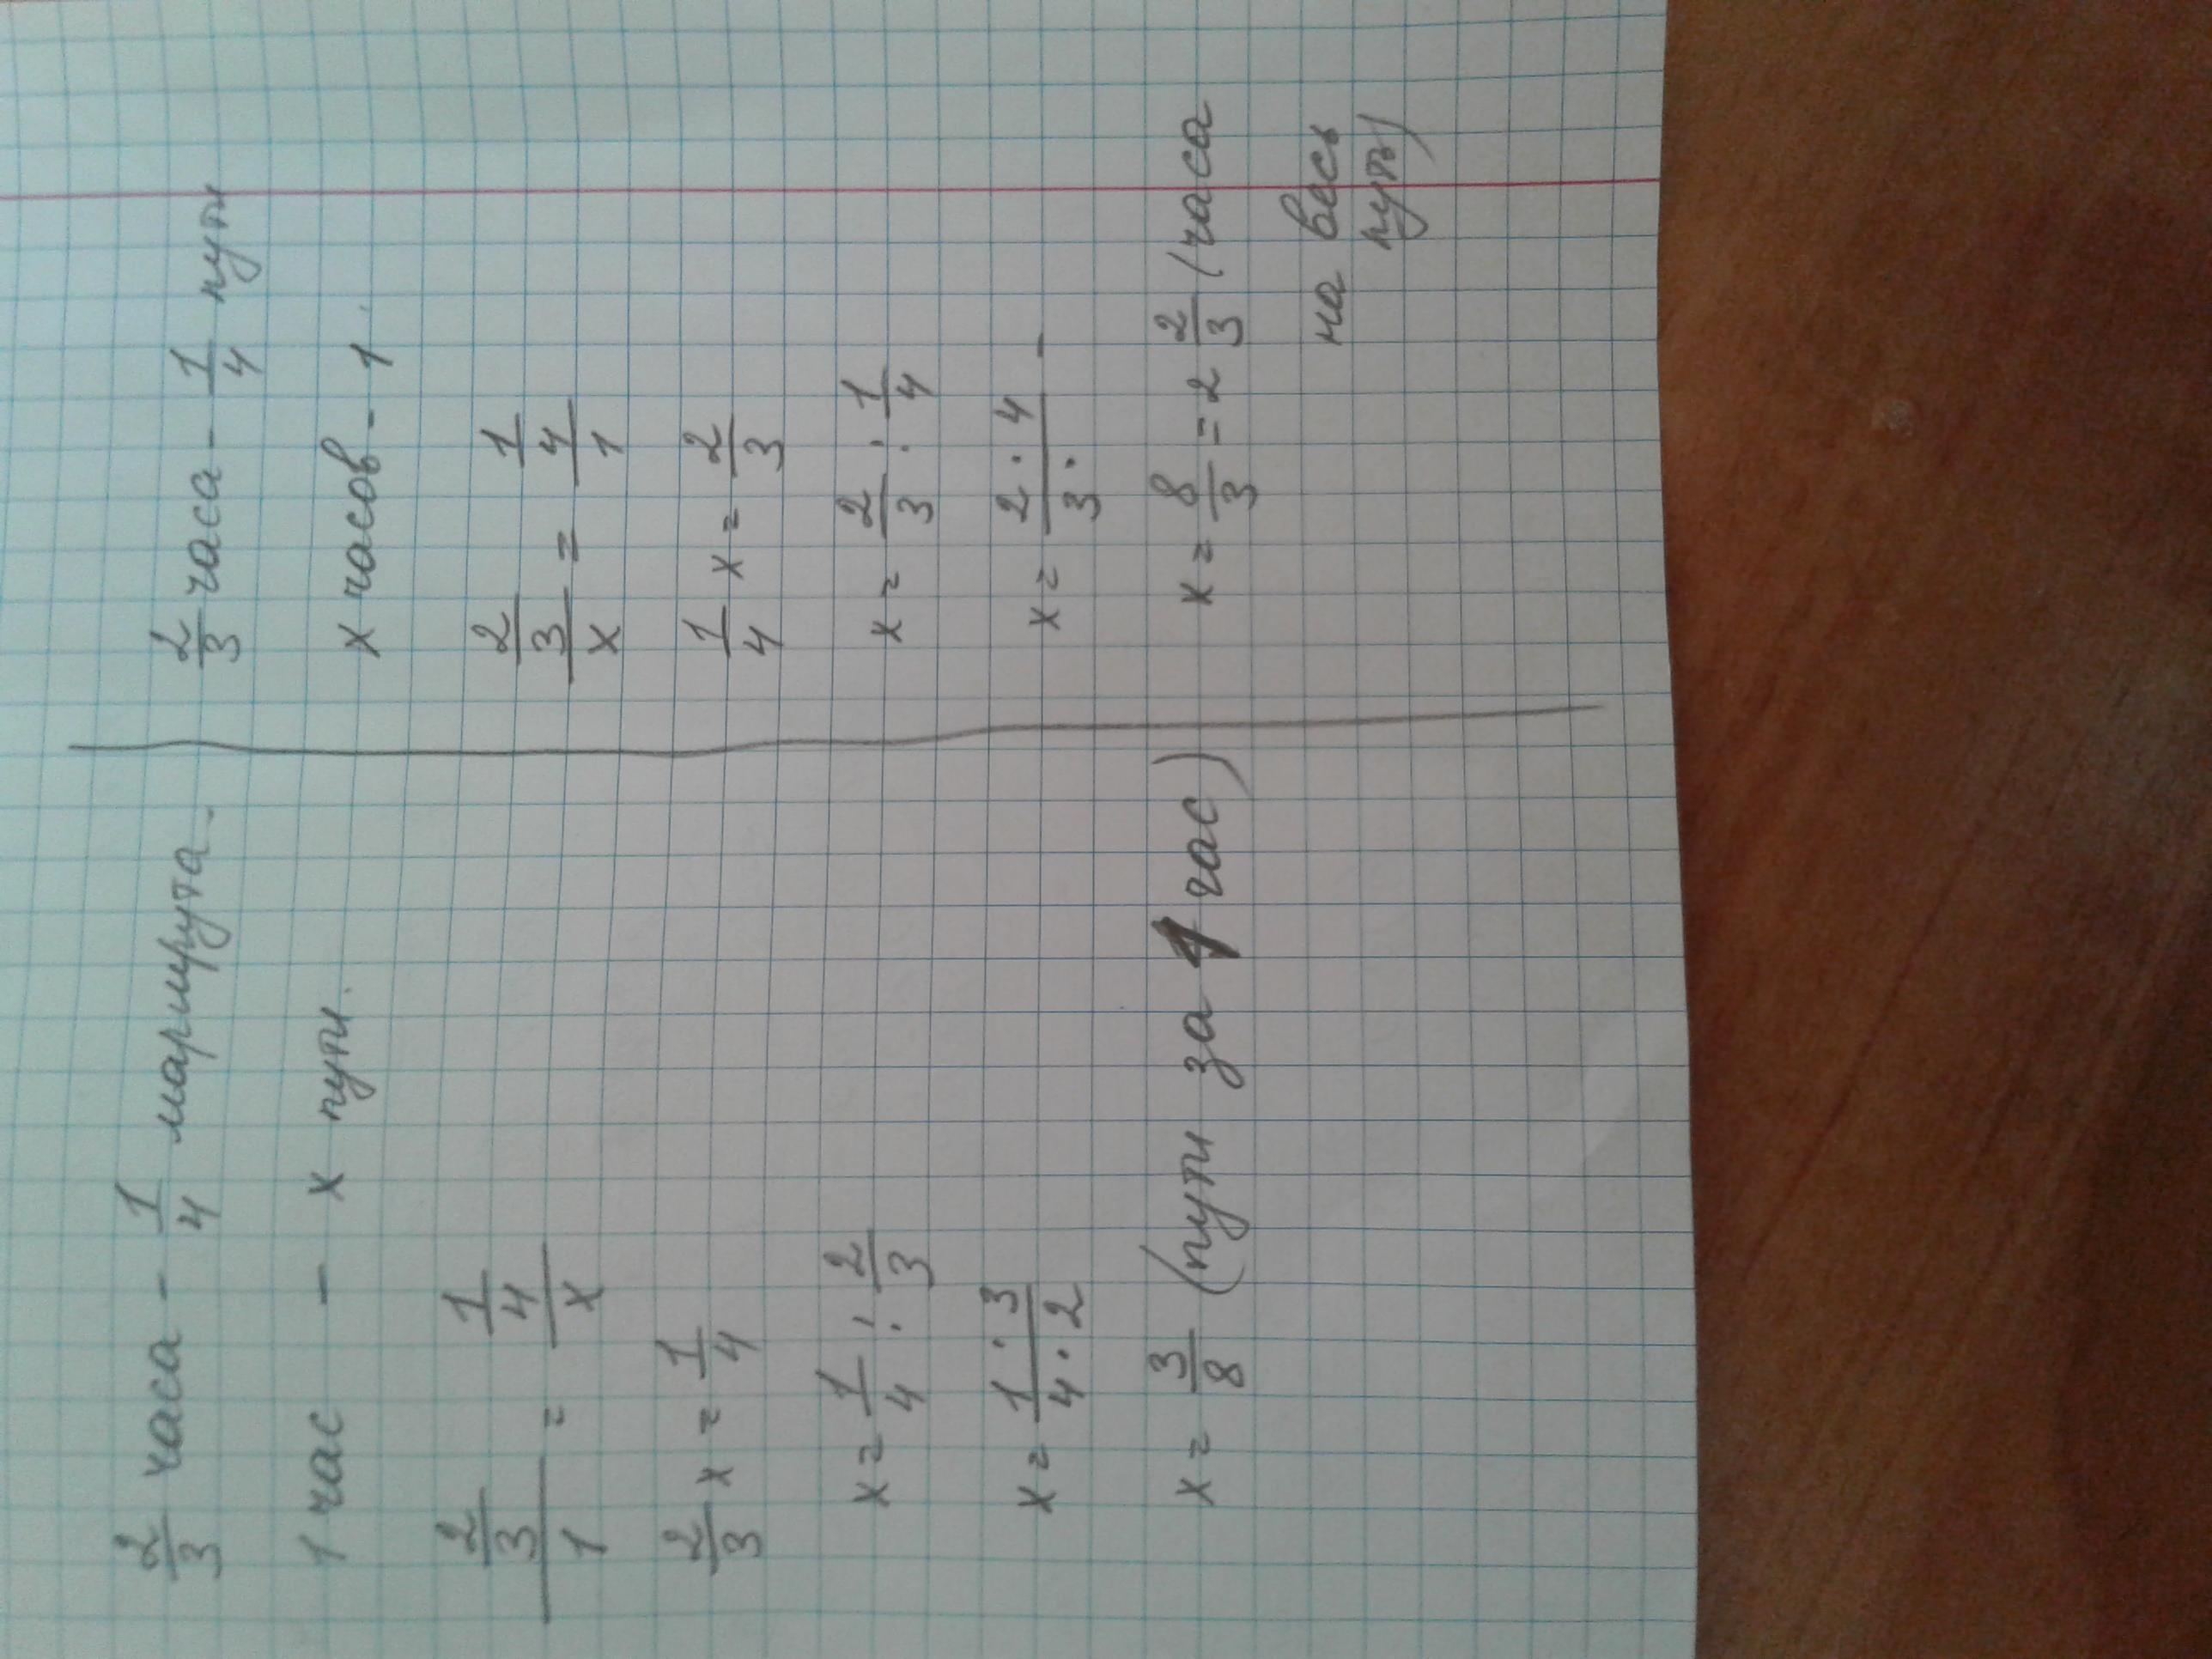 2/3 часа - 1/4 маршрута.
1 час - x пути.
2/3 / 1 = 1/4 / x
2/3 x = 1/4
x = 1/4 : 2/3
x = 1·3 / 4·2
x = 3/8 (пути за 1 час)
2/3 часа - 1/4 пути
x часов - 1.
2/3 / x = 1/4 / 1
1/4 x = 2/3
x = 2/3 : 1/4
x = 2·4 / 3· -
x = 8/3 = 2 2/3 (часа
на весь
путь)